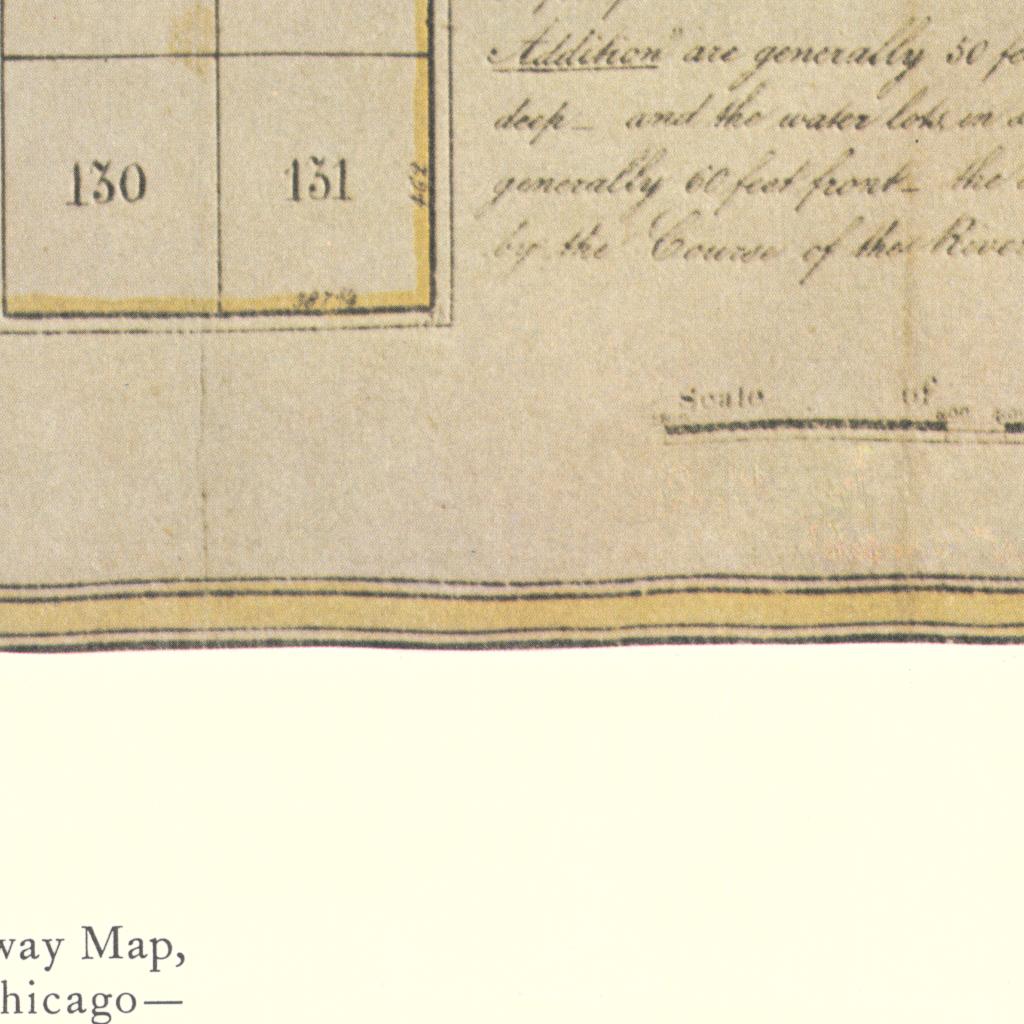 Addition" are generally 50
deep – and the water lots in
generally 60 feet front – the
by the Course of the River
130
131
462
Scale of
way Map,
hicago—